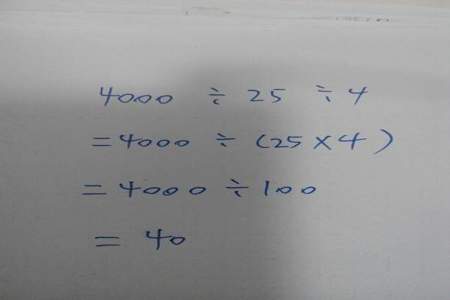 4000 ÷ 25 ÷ 4
=4000 ÷ (25×4)
= 4000 ÷ 100
= 40